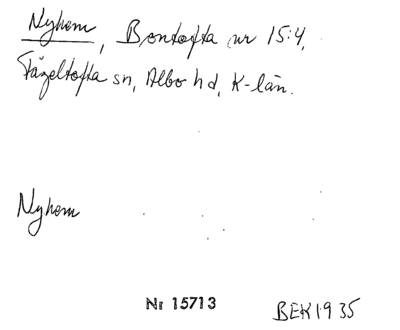 Nyhem, Bontofta nr 15:4,
Fågeltofta sn, Albo hd, K-län.
Nyhem
Nr 15713
BEK 1935